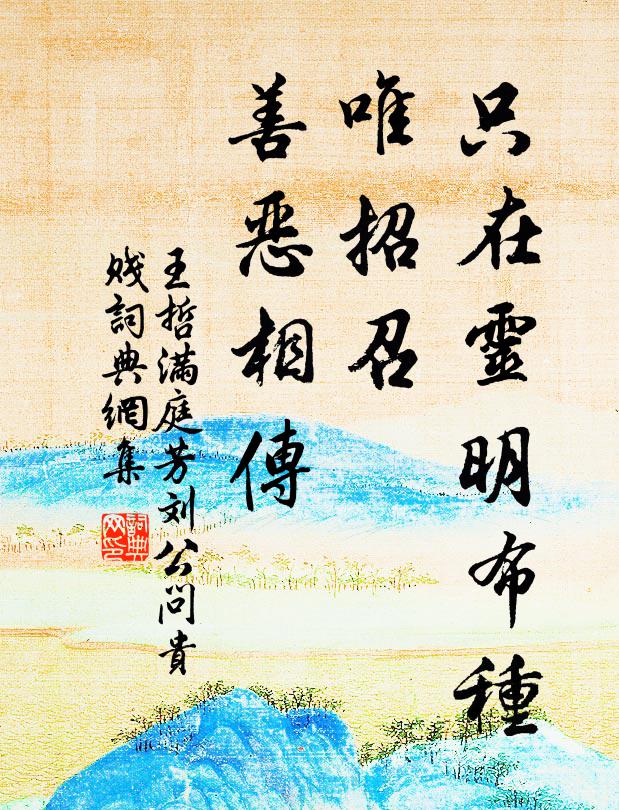 只在靈明布種
唯招召
善惡相傳
王哲滿庭芳刘公問貴
賤詞典網集
詞典
网印